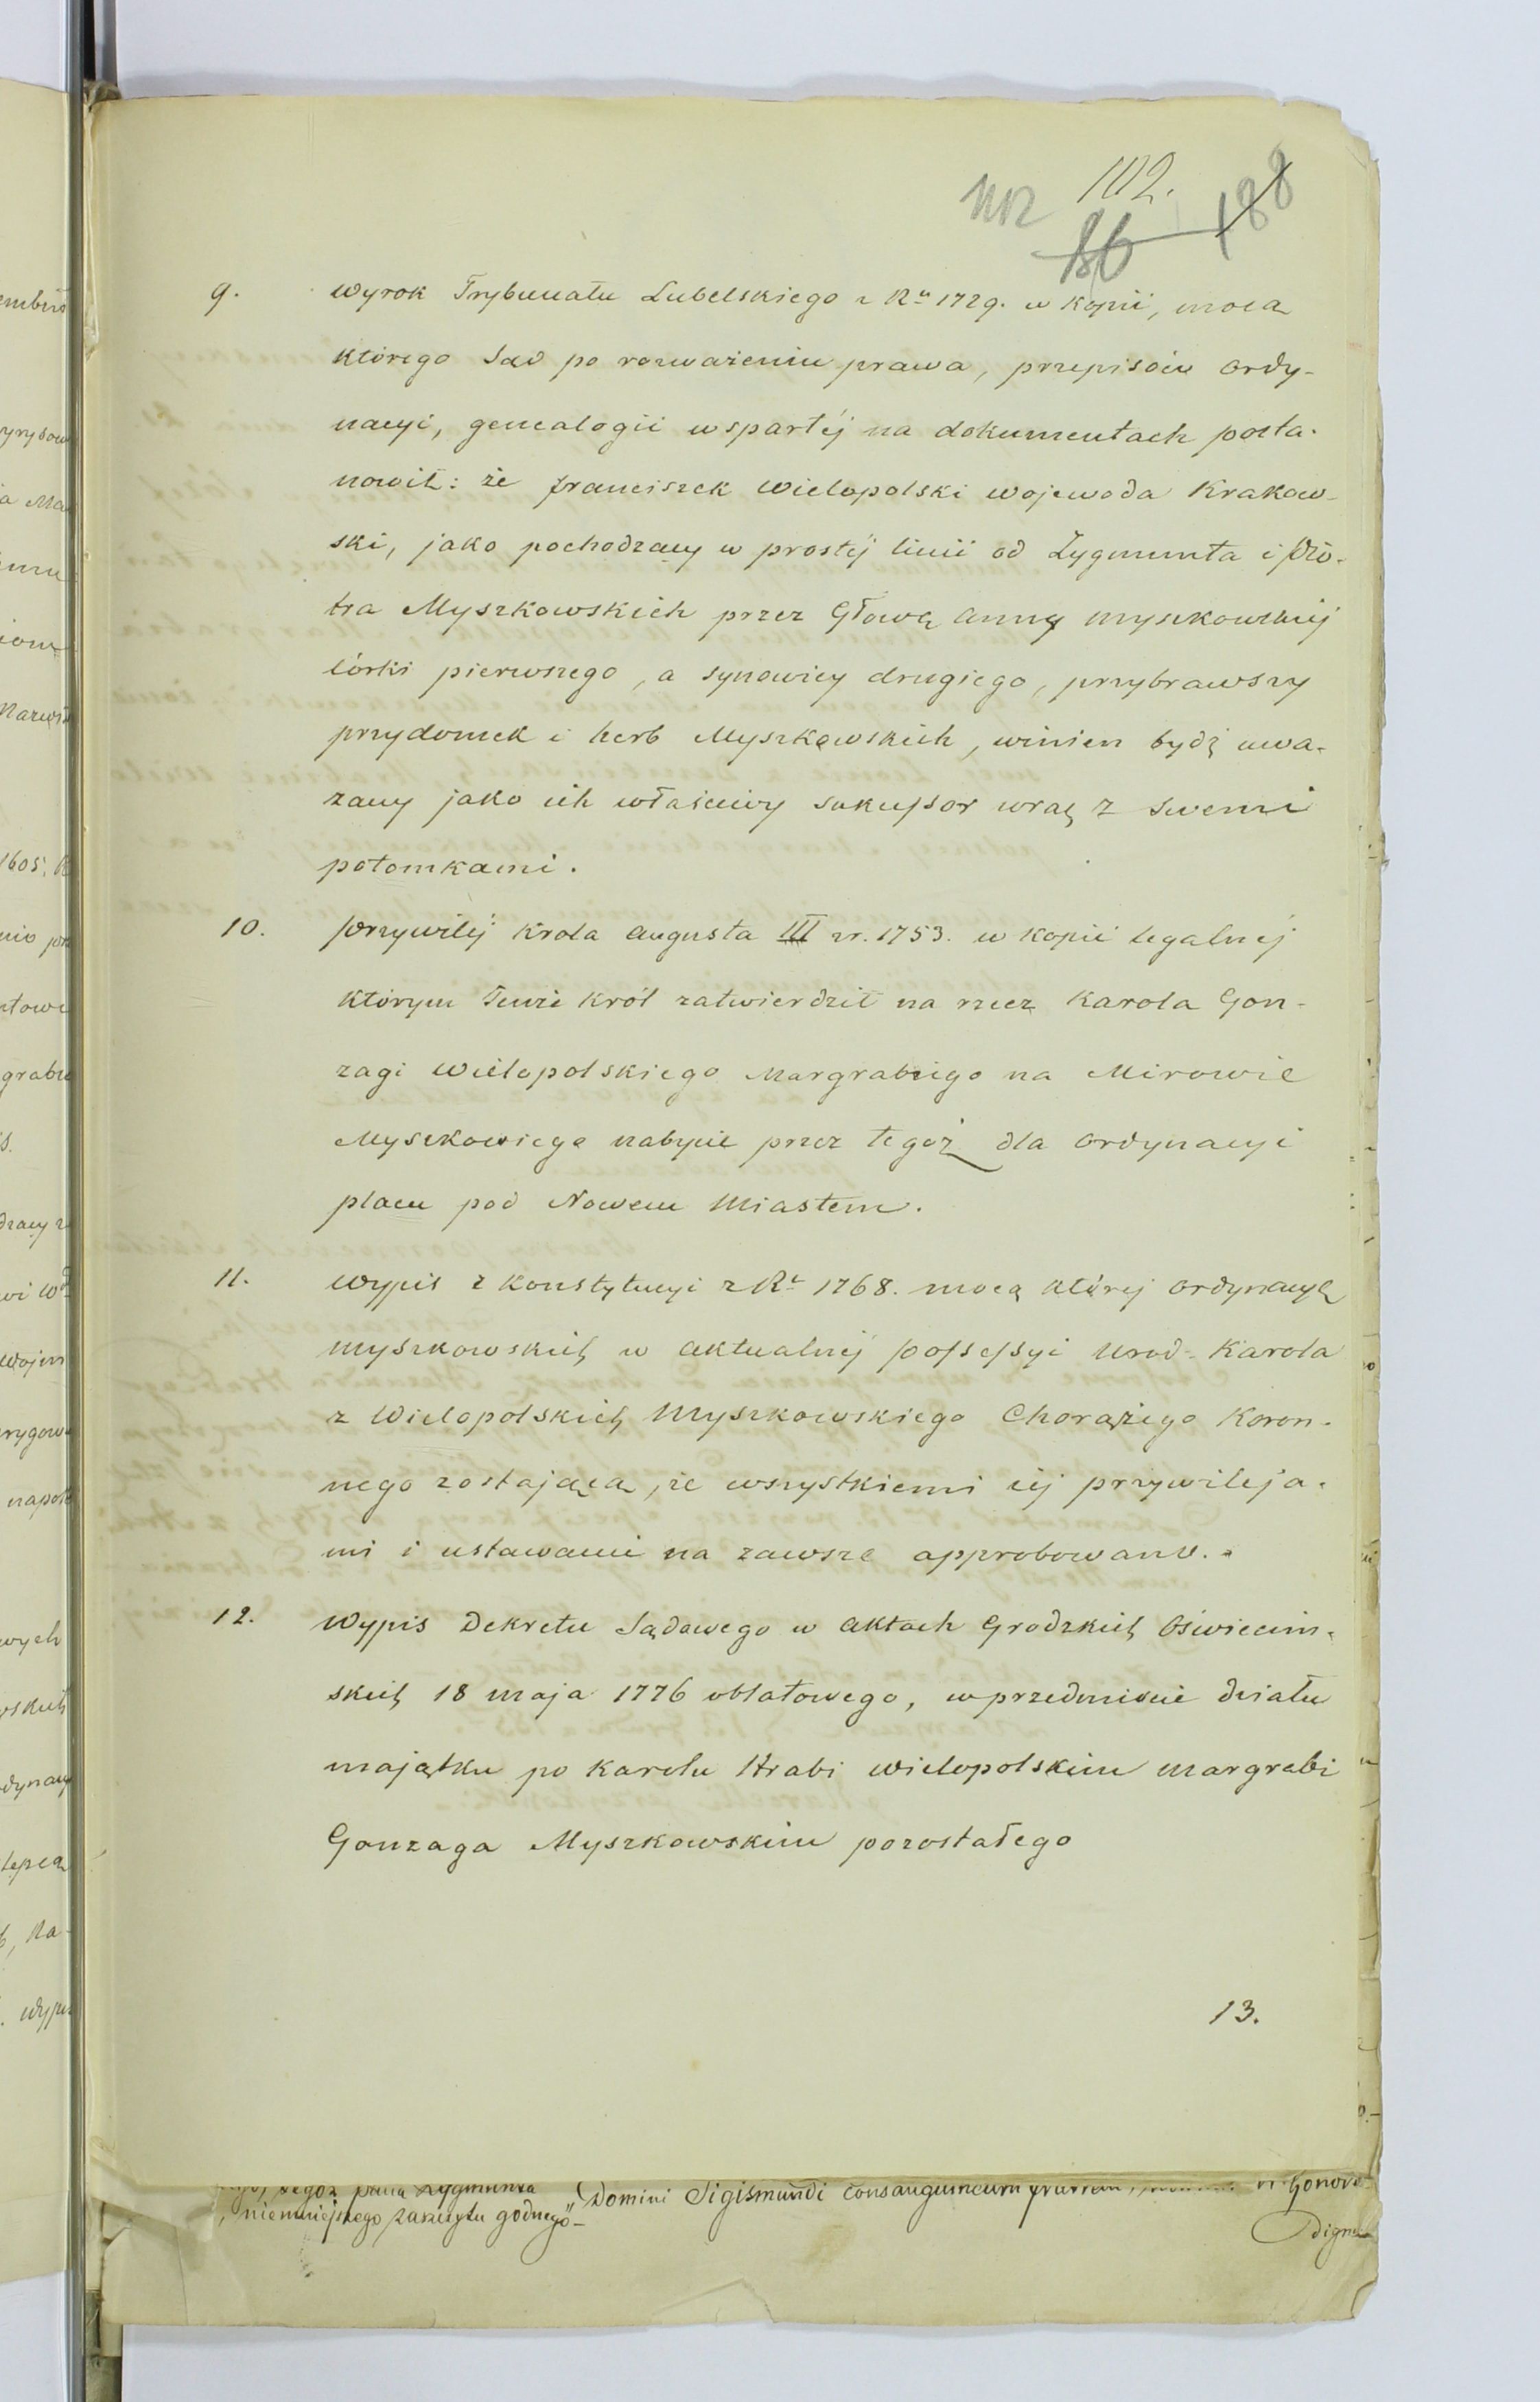 102.
86 188
9. Wyrok Trybunału Lubelskiego z Ru 1729. w kopii, mocą
którego Sąd po rozważeniu prawa, przepisów Ordy-
nacyi, genealogii wspartéj na dokumentach posta-
nowił: że Franciszek Wielopolski Wojewoda Krakow-
ski, jako pochodzący w prostéj linii od Zygmunta i Pio-
tra Myszkowskich przez Głowę Anny Myszkowskiéj
córki pierwszego, a synowicy drugiego, przybrawszy
przydomek i herb Myszkowskich, winien bydź uwa-
żany jako ich właściwy sukcessor wraz z swemi
potomkami.
10. Przywiléj Krola Augusta III z r. 1753. w kopii legalnéj
którym Tenże Król zatwierdził na rzecz Karola Gon-
zagi Wielopolskiego Margrabiego na Mirowie
Myszkowskiego nabycie przez tegoż dla Ordynacyi
placu pod Nowem Miastem.
11. Wypis z Konstytucyi z Ru 1768. mocą któréj Ordynacyą
Myszkowskich w aktualnéj possessyi Urod. Karola
z Wielopolskich Myszkowskiego Chorążego Koron-
nego zostającą, ze wszystkiemi iéj przywileja-
mi i ustawami na zawsze approbowano.
12. Wypis Dekretu Sądowego w Aktach Grodzkich Oświecim-
skich 18 maja 1776 oblatowego, w przedmiocie działu
majątku po Karolu Hrabi Wielopolskim Margrabi
Gonzaga Myszkowskim pozostałego
13.
tegoż pana Zygmunta
niemniejszego zaszczytu godnego
Domini Sigismundi consanguineum fratrem
Honore
Digna